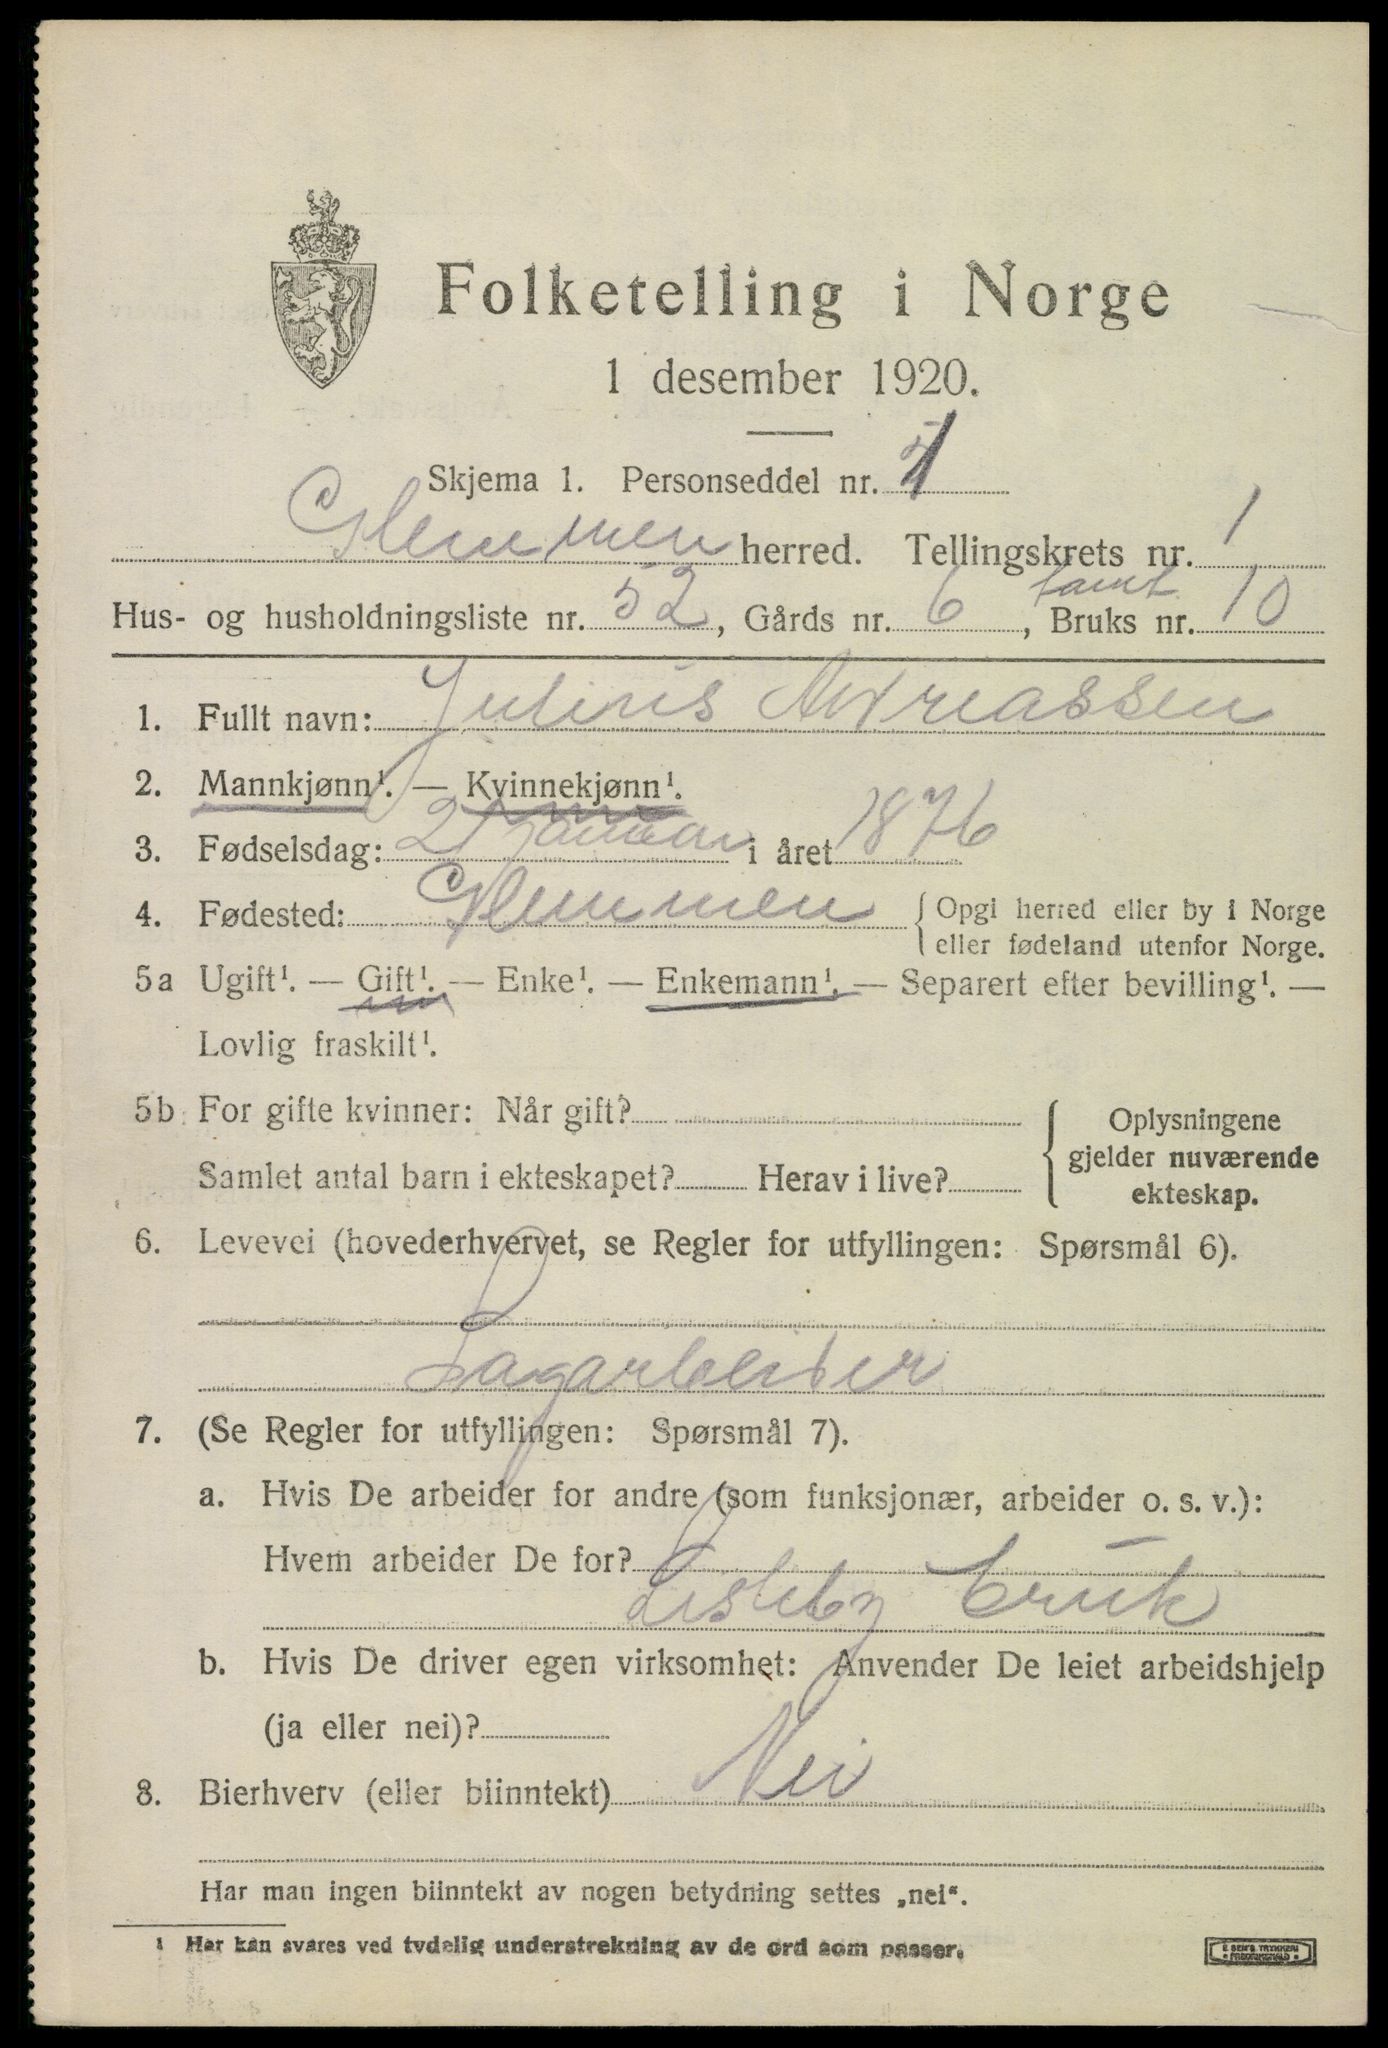 Folketelling i Norge
1 desember 1920.
Skjema 1. Personseddel nr. 1
Glemmen herred. Tellingskrets nr. 1
Hus- og husholdningsliste nr. 52, Gårds nr. 6, Bruks nr. 10
1. Fullt navn: Julius Andreassen
2. Mannkjønn¹. — Kvinnekjønn¹.
3. Fødselsdag: 21 januar i året 1876
4. Fødested: Glemmen { Opgi herred eller by i Norge
eller fødeland utenfor Norge.
5a Ugift¹. — Gift¹. — Enke¹. — Enkemann¹. — Separert efter bevilling¹. —
Lovlig fraskilt¹.
5b For gifte kvinner: Når gift?
Samlet antal barn i ekteskapet? Herav i live?
{ Oplysningene
gjelder nuværende
ekteskap.
6. Levevei (hovederhvervet, se Regler for utfyllingen: Spørsmål 6).
Sagarbeider
7. (Se Regler for utfyllingen: Spørsmål 7).
a. Hvis De arbeider for andre (som funksjonær, arbeider o. s. v.):
Hvem arbeider De for?
Lisleby bruk
b. Hvis De driver egen virksomhet: Anvender De leiet arbeidshjelp
(ja eller nei)?
8. Bierhverv (eller biinntekt) Nei
Har man ingen biinntekt av nogen betydning settes „nei“.
¹ Her kan svares ved tydelig understrekning av de ord som passer.